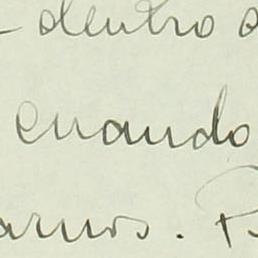 - dentro d
cuando
arnos. P